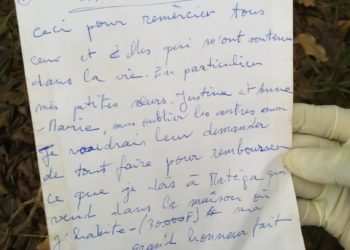 ceci pour remercier tous
ceux et celles qui m'ont soutenu
dans la vie. En particulier
mes petites sœurs. Justine et Anne
-Marie, sans oublier les autres aussi
Je voudrais leur demander
de tout faire pour rembourser
ce que je dois à qui
vend dans la maison où
j'habite - (30.000F)
grand honneur fait